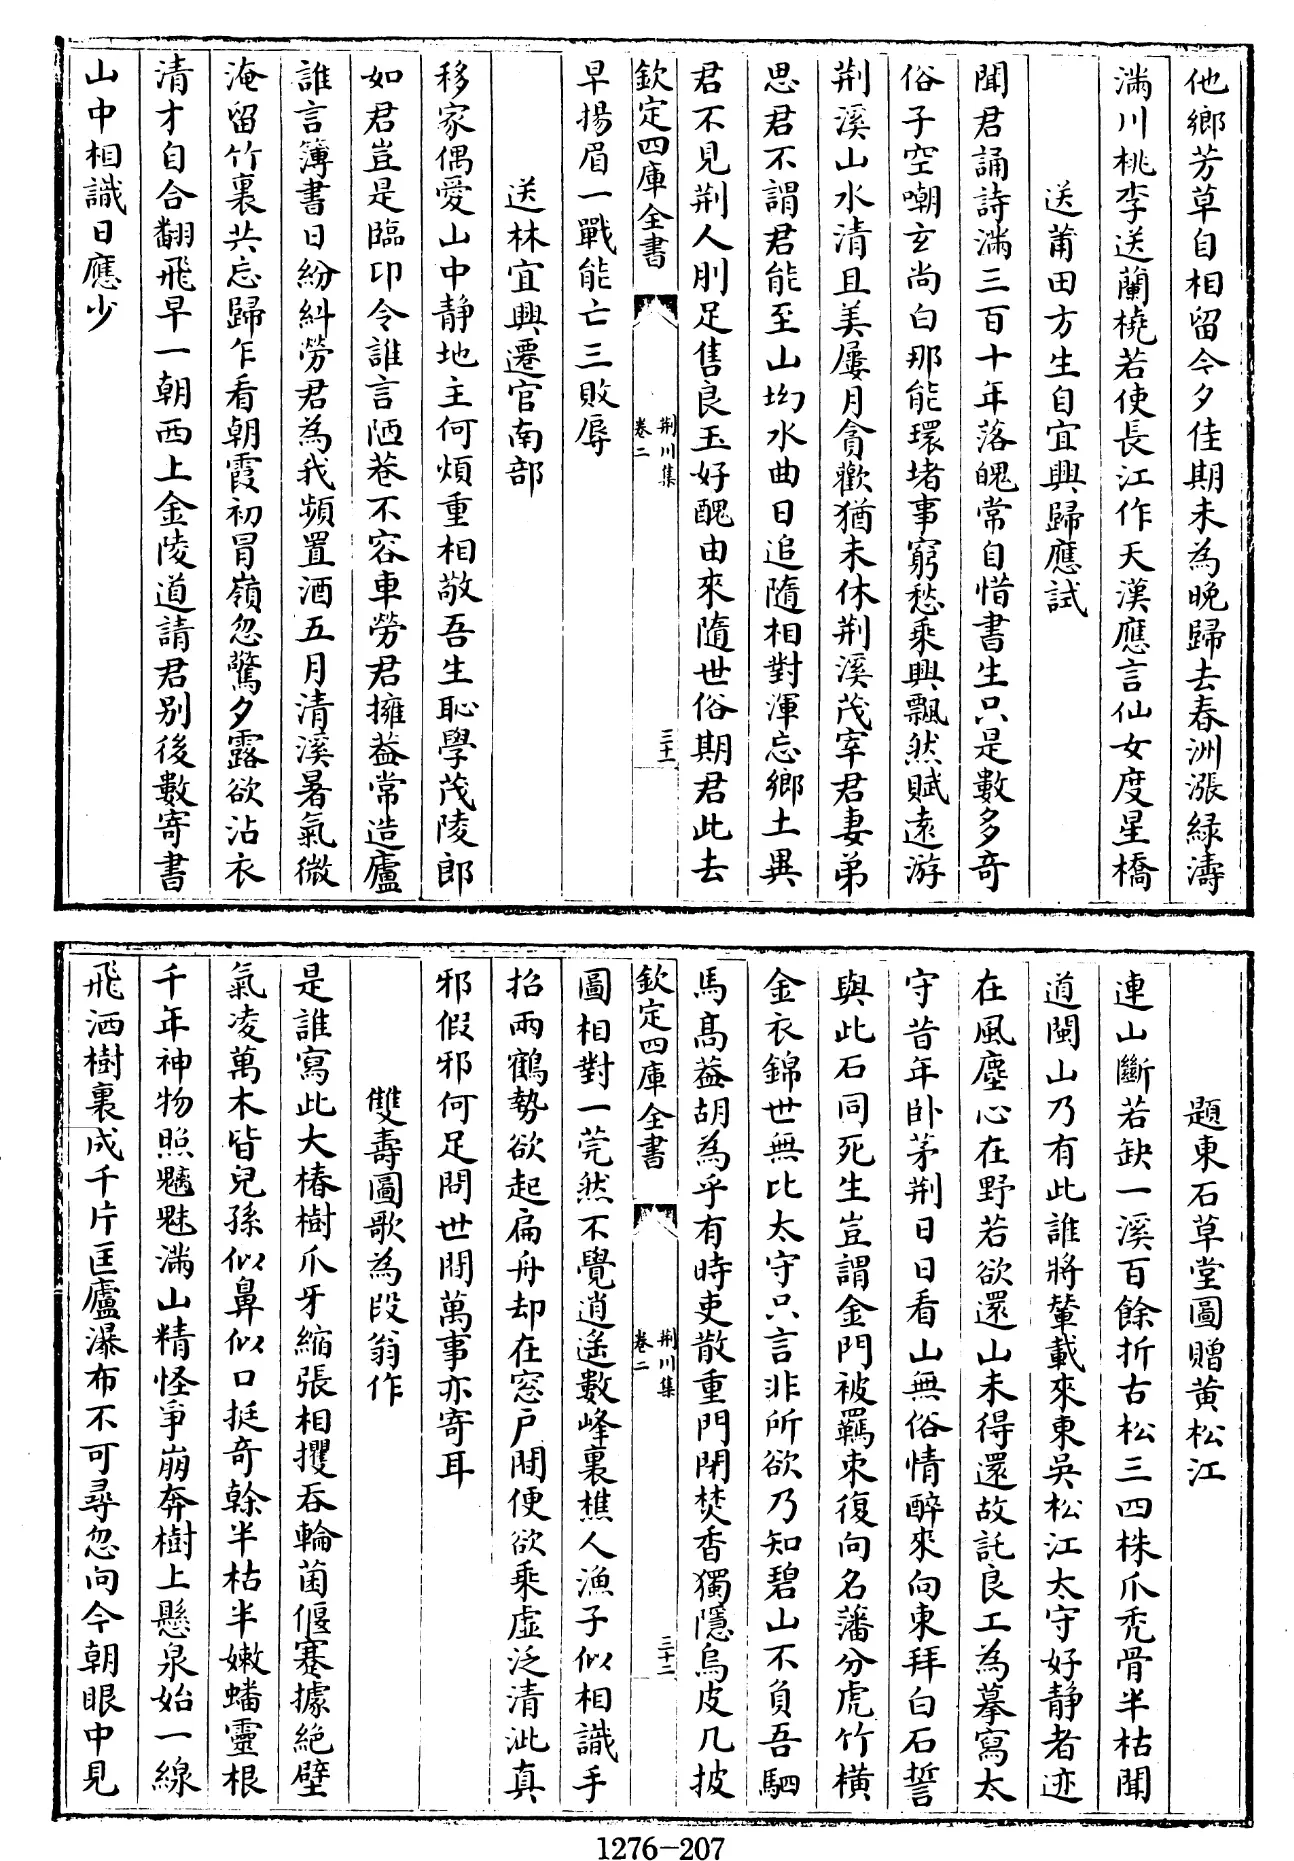 他鄉芳草自相留今夕佳期未為晩歸去春洲漲緑濤
滿川桃李送蘭橈若使長江作天漢應言仙女度星橋
送莆田方生自宜興歸應試
聞君誦詩滿三百十年落魄常自惜書生只是數多奇
俗子空嘲玄尚白那能環堵事窮愁乘興飄然賦遠游
荆溪山水清且美屢月貪歡猶未休荆溪茂宰君妻弟
思君不謂君能至山㘭水曲日追隨相對渾忘鄉土異
君不見荆人刖足售良玉好醜由來隨世俗期君此去
欽定四庫全書
荆川集
卷二
三十一
早揚眉一戰能亡三敗辱
送林宜興遷官南部
移家偶愛山中静地主何煩重相敬吾生恥學茂陵郎
如君豈是臨卭令誰言陋巷不容車勞君擁葢常造廬
誰言簿書日紛糾勞君為我頻置酒五月清溪暑氣微
淹留竹裏共忘歸乍看朝霞初冒嶺忽驚夕露欲沾衣
清才自合翻飛早一朝西上金陵道請君别後數寄書
山中相識日應少
題東石草堂圖贈黄松江
連山斷若缺一溪百餘折古松三四株爪禿骨半枯聞
道閩山乃有此誰將輦載來東吳松江太守好静者迹
在風塵心在野若欲還山未得還故託良工為摹寫太
守昔年卧茅荆日日看山無俗情醉來向東拜白石誓
與此石同死生豈謂金門被羈束復向名藩分虎竹橫
金衣錦世無比太守只言非所欲乃知碧山不負吾駟
馬髙葢胡為乎有時吏散重門閉焚香獨隱烏皮几披
欽定四庫全書
荆川集
卷二
三十二
圖相對一莞然不覺逍遙數峰裏樵人漁子似相識手
招兩鶴勢欲起扁舟却在窓户間便欲乘虛泛清泚真
邪假邪何足問世間萬事亦寄耳
雙壽圖歌為段翁作
是誰寫此大椿樹爪牙縮張相攫吞輪菌偃蹇據絶壁
氣凌萬木皆兒孫似鼻似口挺奇榦半枯半嫩蟠靈根
千年神物照魑魅滿山精怪爭崩奔樹上懸泉始一線
飛洒樹裏成千片匡廬瀑布不可尋忽向今朝眼中見
1276-207